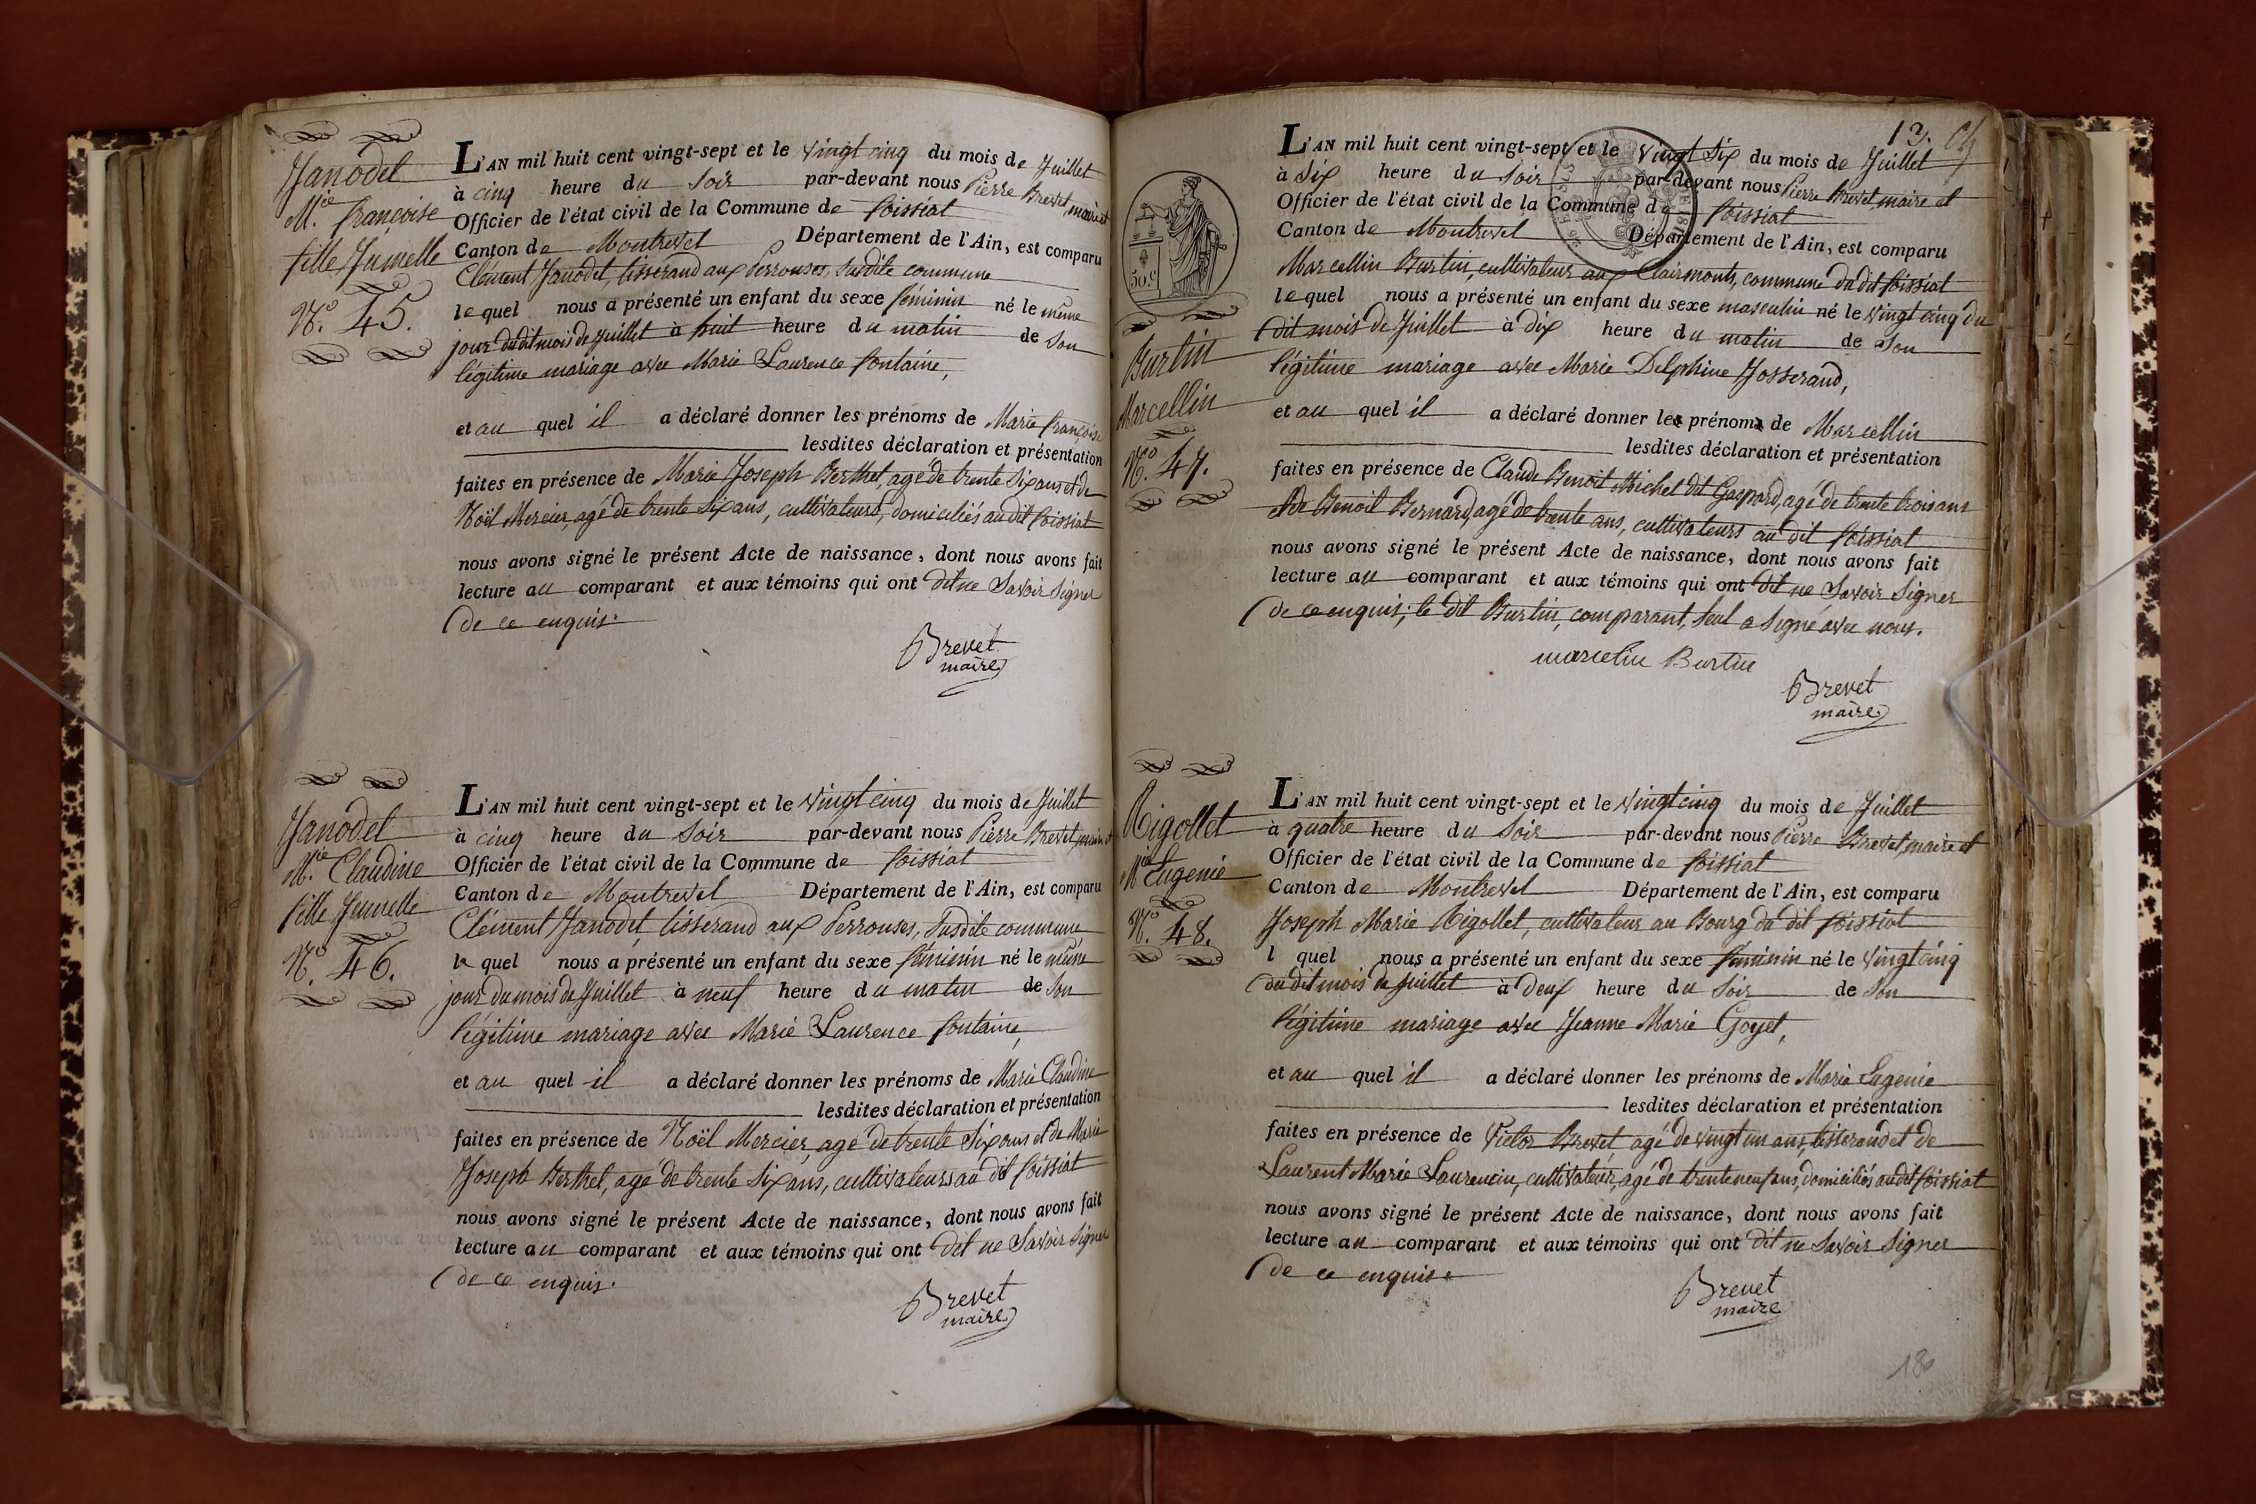 Janodet
M.ie françoise
fille Jumelle
N.o 45.
L'AN mil huit cent vingt-sept et le vingt cinq du mois de Juillet
à cinq heure du Soir par-devant nous Pierre Brevet, maire et
Officier de l'état civil de la Commune de foissiat
Canton de Montrevel Département de l'Ain, est comparu
Clément Janodet, tisserand aux Perrouses, susdite commune
lequel nous a présenté un enfant du sexe féminin né le même
jour du dit mois de Juillet à huit heure du matin de Son
légitime mariage avec Marie Laurence fontaine,
et au quel il a déclaré donner les prénoms de Marie françoise
lesdites déclaration et présentation
faites en présence de Marie Joseph Berthet, agé de trente Six ans et de
Noël Mercier, agé de trente Six ans, cultivateurs, domiciliés au dit foissiat
nous avons signé le présent Acte de naissance, dont nous avons fait
lecture au comparant et aux témoins qui ont dit ne Savoir Signer
de ce enquis.
Brevet
maire
Janodet
M.ie Claudine
fille Jumelle
N.o 46.
L'AN mil huit cent vingt-sept et le vingt cinq du mois de Juillet
à cinq heure du Soir par-devant nous Pierre Brevet, maire et
Officier de l'état civil de la Commune de foissiat
Canton de Montrevel Département de l'Ain, est comparu
Clément Janodet, tisserand aux Perrouses, Susdite commune
le quel nous a présenté un enfant du sexe féminin né le même
jour du mois de Juillet à neuf heure du matin de Son
légitime mariage avec Marie Laurence fontaine,
et au quel il a déclaré donner les prénoms de Marie Claudine
lesdites déclaration et présentation
faites en présence de Noël Mercier, agé de trente Six ans et de Marie
Joseph Berthet, agé de trente Six ans, cultivateurs au dit foissiat
nous avons signé le présent Acte de naissance, dont nous avons fait
lecture au comparant et aux témoins qui ont dit ne Savoir Signer
de ce enquis.
Brevet
maire
13.
50 c
Burtin
Marcellin
N.o 47.
L'AN mil huit cent vingt-sept et le vingt Six du mois de Juillet
à Six heure du Soir par-devant nous Pierre Brevet, maire et
Officier de l'état civil de la Commune de foissiat
Canton de Montrevel Département de l'Ain, est comparu
Marcellin Burtin, cultivateur aux Clairmonts, commune du dit foissiat
lequel nous a présenté un enfant du sexe masculin né le vingt cinq du
dit mois de Juillet à dix heure du matin de Son
légitime mariage avec Marie Delphine Josserand,
et au quel il a déclaré donner le prénom de Marcellin
lesdites déclaration et présentation
faites en présence de Claude Benoit Michel dit Gaspard, agé de trente trois ans
et de Benoit Bernard, agé de trente ans, cultivateurs au dit foissiat
nous avons signé le présent Acte de naissance, dont nous avons fait
lecture au comparant et aux témoins qui ont dit ne Savoir Signer
de ce enquis; le dit Burtin, comparant, Seul a Signé avec nous.
marcelin Burtin
Brevet
maire
Rigollet
M.ie Eugenie
N.o 48.
L'AN mil huit cent vingt-sept et le vingt cinq du mois de Juillet
à quatre heure du Soir par-devant nous Pierre Brevet, maire et
Officier de l'état civil de la Commune de foissiat
Canton de Montrevel Département de l'Ain, est comparu
Joseph Marie Rigollet, cultivateur au Bourg du dit foissiat
l quel nous a présenté un enfant du sexe féminin né le vingt cinq
du dit mois de Juillet à deux heure du Soir de Son
légitime mariage avec Jeanne Marie Goyet,
et au quel il a déclaré donner les prénoms de Marie Eugenie
lesdites déclaration et présentation
faites en présence de Victor Brevet, agé de vingt un ans, tisserand et de
Laurent Marie Laurencin, cultivateur, agé de trente neuf ans, domiciliés au dit foissiat
nous avons signé le présent Acte de naissance, dont nous avons fait
lecture au comparant et aux témoins qui ont dit ne Savoir Signer
de ce enquis.
Brevet
maire
180